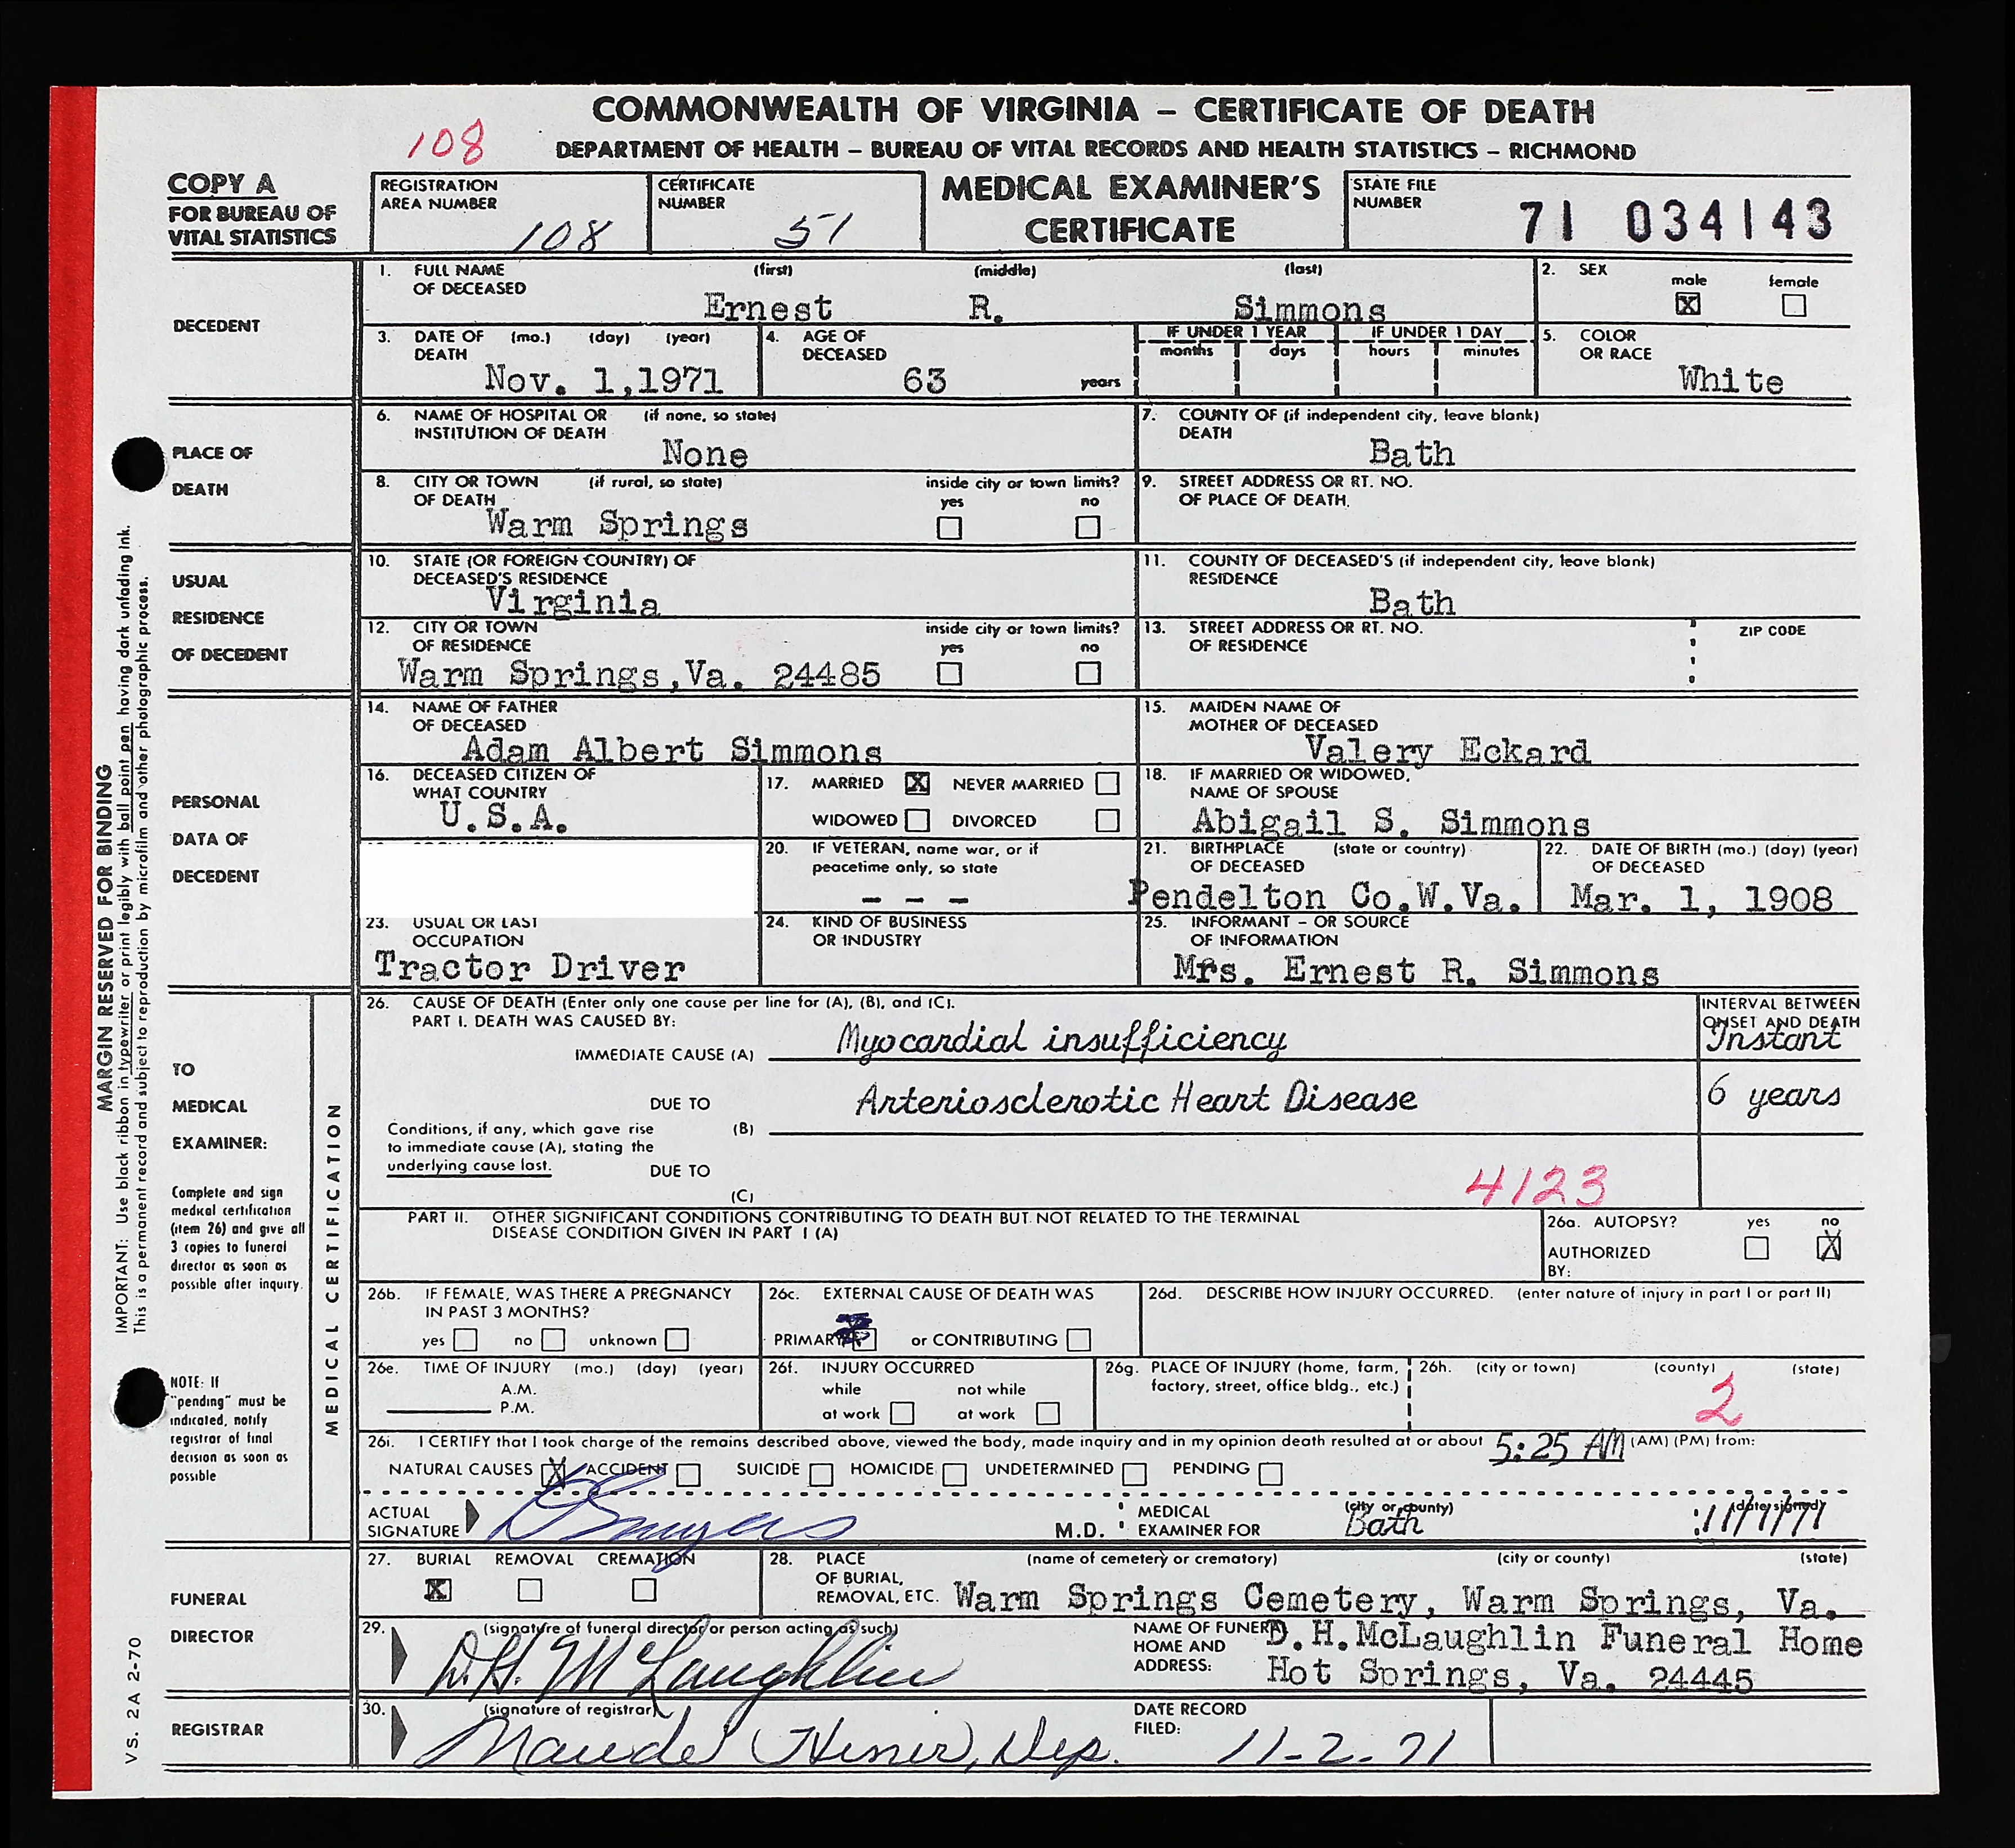 COMMONWEALTH OF VIRGINIA – CERTIFICATE OF DEATH
108
DEPARTMENT OF HEALTH – BUREAU OF VITAL RECORDS AND HEALTH STATISTICS – RICHMOND
COPY A
FOR BUREAU OF
VITAL STATISTICS
REGISTRATION
AREA NUMBER
108
CERTIFICATE
NUMBER
51
MEDICAL EXAMINER'S
CERTIFICATE
STATE FILE
NUMBER
71 034143
DECEDENT
1. FULL NAME (first) (middle) (last)
OF DECEASED
Ernest R. Simmons
2. SEX male female
X
3. DATE OF (mo.) (day) (year)
DEATH
Nov. 1,1971
4. AGE OF
DECEASED
63 years
IF UNDER 1 YEAR IF UNDER 1 DAY
months days hours minutes
5. COLOR
OR RACE
White
PLACE OF
DEATH
6. NAME OF HOSPITAL OR (if none, so state)
INSTITUTION OF DEATH
None
7. COUNTY OF (if independent city, leave blank)
DEATH
Bath
8. CITY OR TOWN (if rural, so state) inside city or town limits?
OF DEATH yes no
Warm Springs
9. STREET ADDRESS OR RT. NO.
OF PLACE OF DEATH.
USUAL
RESIDENCE
OF DECEDENT
10. STATE (OR FOREIGN COUNTRY) OF
DECEASED'S RESIDENCE
Virginia
11. COUNTY OF DECEASED'S (if independent city, leave blank)
RESIDENCE
Bath
12. CITY OR TOWN inside city or town limits?
OF RESIDENCE yes no
Warm Springs,Va. 24485
13. STREET ADDRESS OR RT. NO. ZIP CODE
OF RESIDENCE
PERSONAL
DATA OF
DECEDENT
14. NAME OF FATHER
OF DECEASED
Adam Albert Simmons
15. MAIDEN NAME OF
MOTHER OF DECEASED
Valery Eckard
16. DECEASED CITIZEN OF
WHAT COUNTRY
U.S.A.
17. MARRIED X NEVER MARRIED
WIDOWED DIVORCED
18. IF MARRIED OR WIDOWED,
NAME OF SPOUSE
Abigail S. Simmons
20. IF VETERAN, name war, or if
peacetime only, so state
- - -
21. BIRTHPLACE (state or country)
OF DECEASED
Pendelton Co.W.Va.
22. DATE OF BIRTH (mo.) (day) (year)
OF DECEASED
Mar. 1, 1908
23. USUAL OR LAST
OCCUPATION
Tractor Driver
24. KIND OF BUSINESS
OR INDUSTRY
25. INFORMANT – OR SOURCE
OF INFORMATION
Mrs. Ernest R. Simmons
TO
MEDICAL
EXAMINER:
Complete and sign
medical certification
(item 26) and give all
3 copies to funeral
director as soon as
possible after inquiry.
NOTE: If
"pending" must be
indicated, notify
registrar of final
decision as soon as
possible
MEDICAL CERTIFICATION
26. CAUSE OF DEATH (Enter only one cause per line for (A), (B), and (C).
PART I. DEATH WAS CAUSED BY:
IMMEDIATE CAUSE (A) Myocardial insufficiency
INTERVAL BETWEEN
ONSET AND DEATH
Instant
DUE TO
Arteriosclerotic Heart Disease
6 years
Conditions, if any, which gave rise (B)
to immediate cause (A), stating the
underlying cause last. DUE TO
(C)
4123
PART II. OTHER SIGNIFICANT CONDITIONS CONTRIBUTING TO DEATH BUT NOT RELATED TO THE TERMINAL
DISEASE CONDITION GIVEN IN PART I (A)
26a. AUTOPSY? yes no
X
AUTHORIZED
BY:
26b. IF FEMALE, WAS THERE A PREGNANCY
IN PAST 3 MONTHS?
yes no unknown
26c. EXTERNAL CAUSE OF DEATH WAS
PRIMARY or CONTRIBUTING
26d. DESCRIBE HOW INJURY OCCURRED. (enter nature of injury in part I or part II)
26e. TIME OF INJURY (mo.) (day) (year)
A.M.
P.M.
26f. INJURY OCCURRED
while not while
at work at work
26g. PLACE OF INJURY (home, farm,
factory, street, office bldg., etc.)
26h. (city or town) (county) (state)
2
26i. I CERTIFY that I took charge of the remains described above, viewed the body, made inquiry and in my opinion death resulted at or about 5:25 AM (AM) (PM) from:
NATURAL CAUSES X ACCIDENT SUICIDE HOMICIDE UNDETERMINED PENDING
ACTUAL
SIGNATURE
M.D.
MEDICAL
EXAMINER FOR
(city or county)
Bath
(date signed)
11/1/71
FUNERAL
DIRECTOR
27. BURIAL REMOVAL CREMATION
X
28. PLACE (name of cemetery or crematory) (city or county) (state)
OF BURIAL,
REMOVAL, ETC. Warm Springs Cemetery, Warm Springs, Va.
29. (signature of funeral director or person acting as such)
D.H. McLaughlin
NAME OF FUNERAL
HOME AND
ADDRESS:
D.H.McLaughlin Funeral Home
Hot Springs, Va. 24445
REGISTRAR
30. (signature of registrar)
Maude Hiner, Dep.
DATE RECORD
FILED:
11-2-71
MARGIN RESERVED FOR BINDING
IMPORTANT: Use black ribbon in typewriter or print legibly with ball point pen having dark unfading ink.
This is a permanent record and subject to reproduction by microfilm and other photographic process.
VS. 2A 2-70